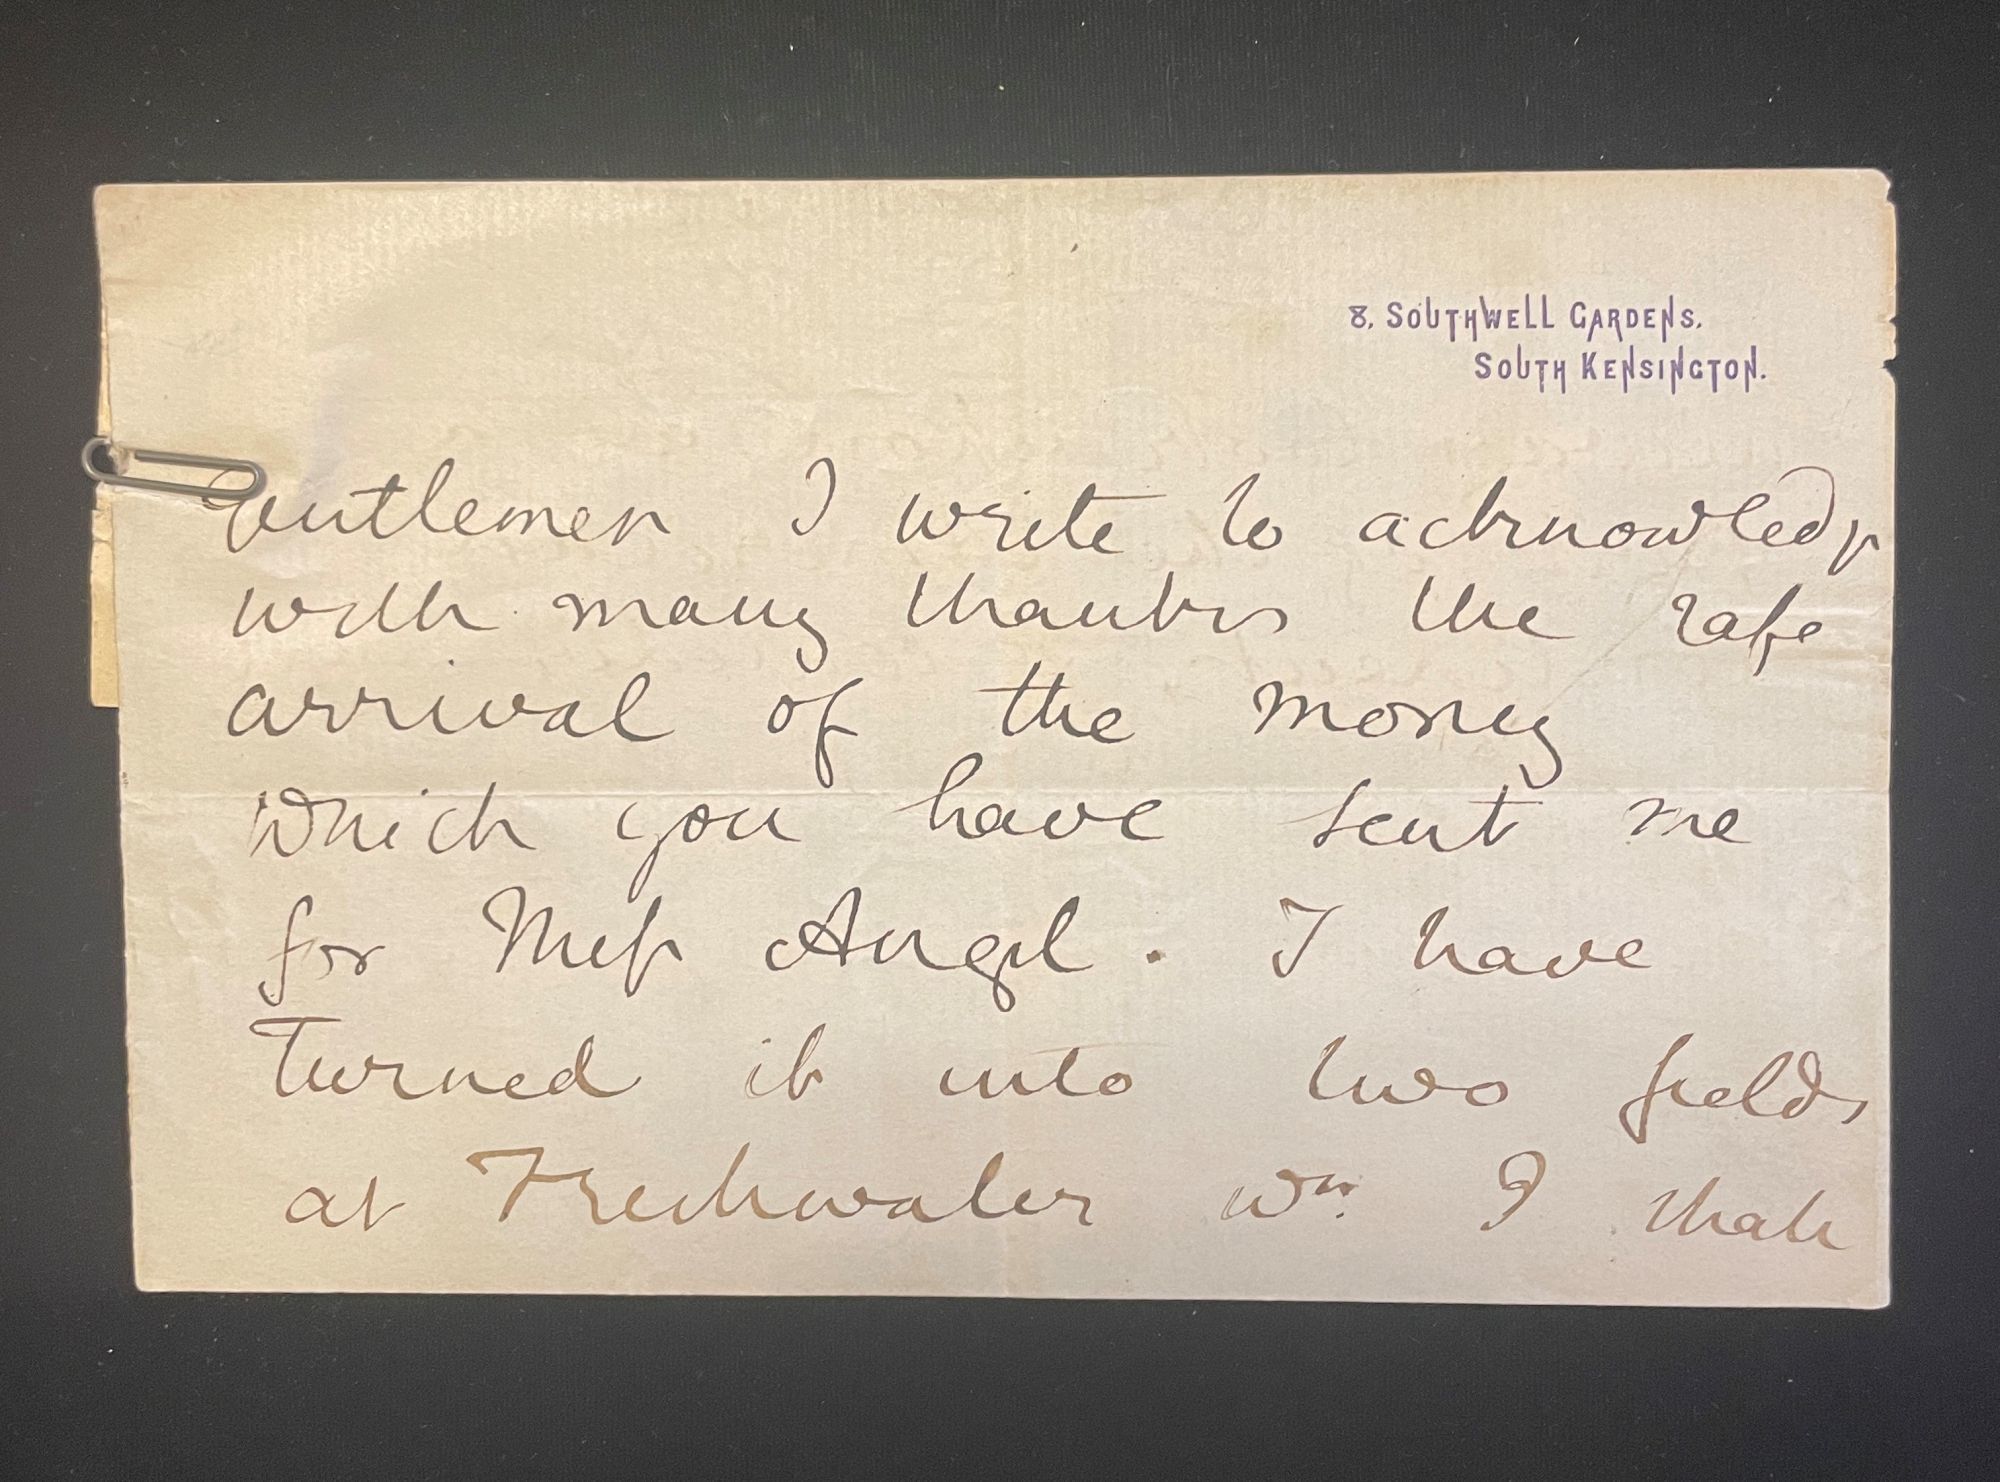 8, SOUTHWELL GARDENS,
SOUTH KENSINGTON.
Gentlemen I write to acknowledge
with many thanks the safe
arrival of the money
which you have sent me
for Miss Angel. I have
turned it into two fields
at Freshwater wh. I shall